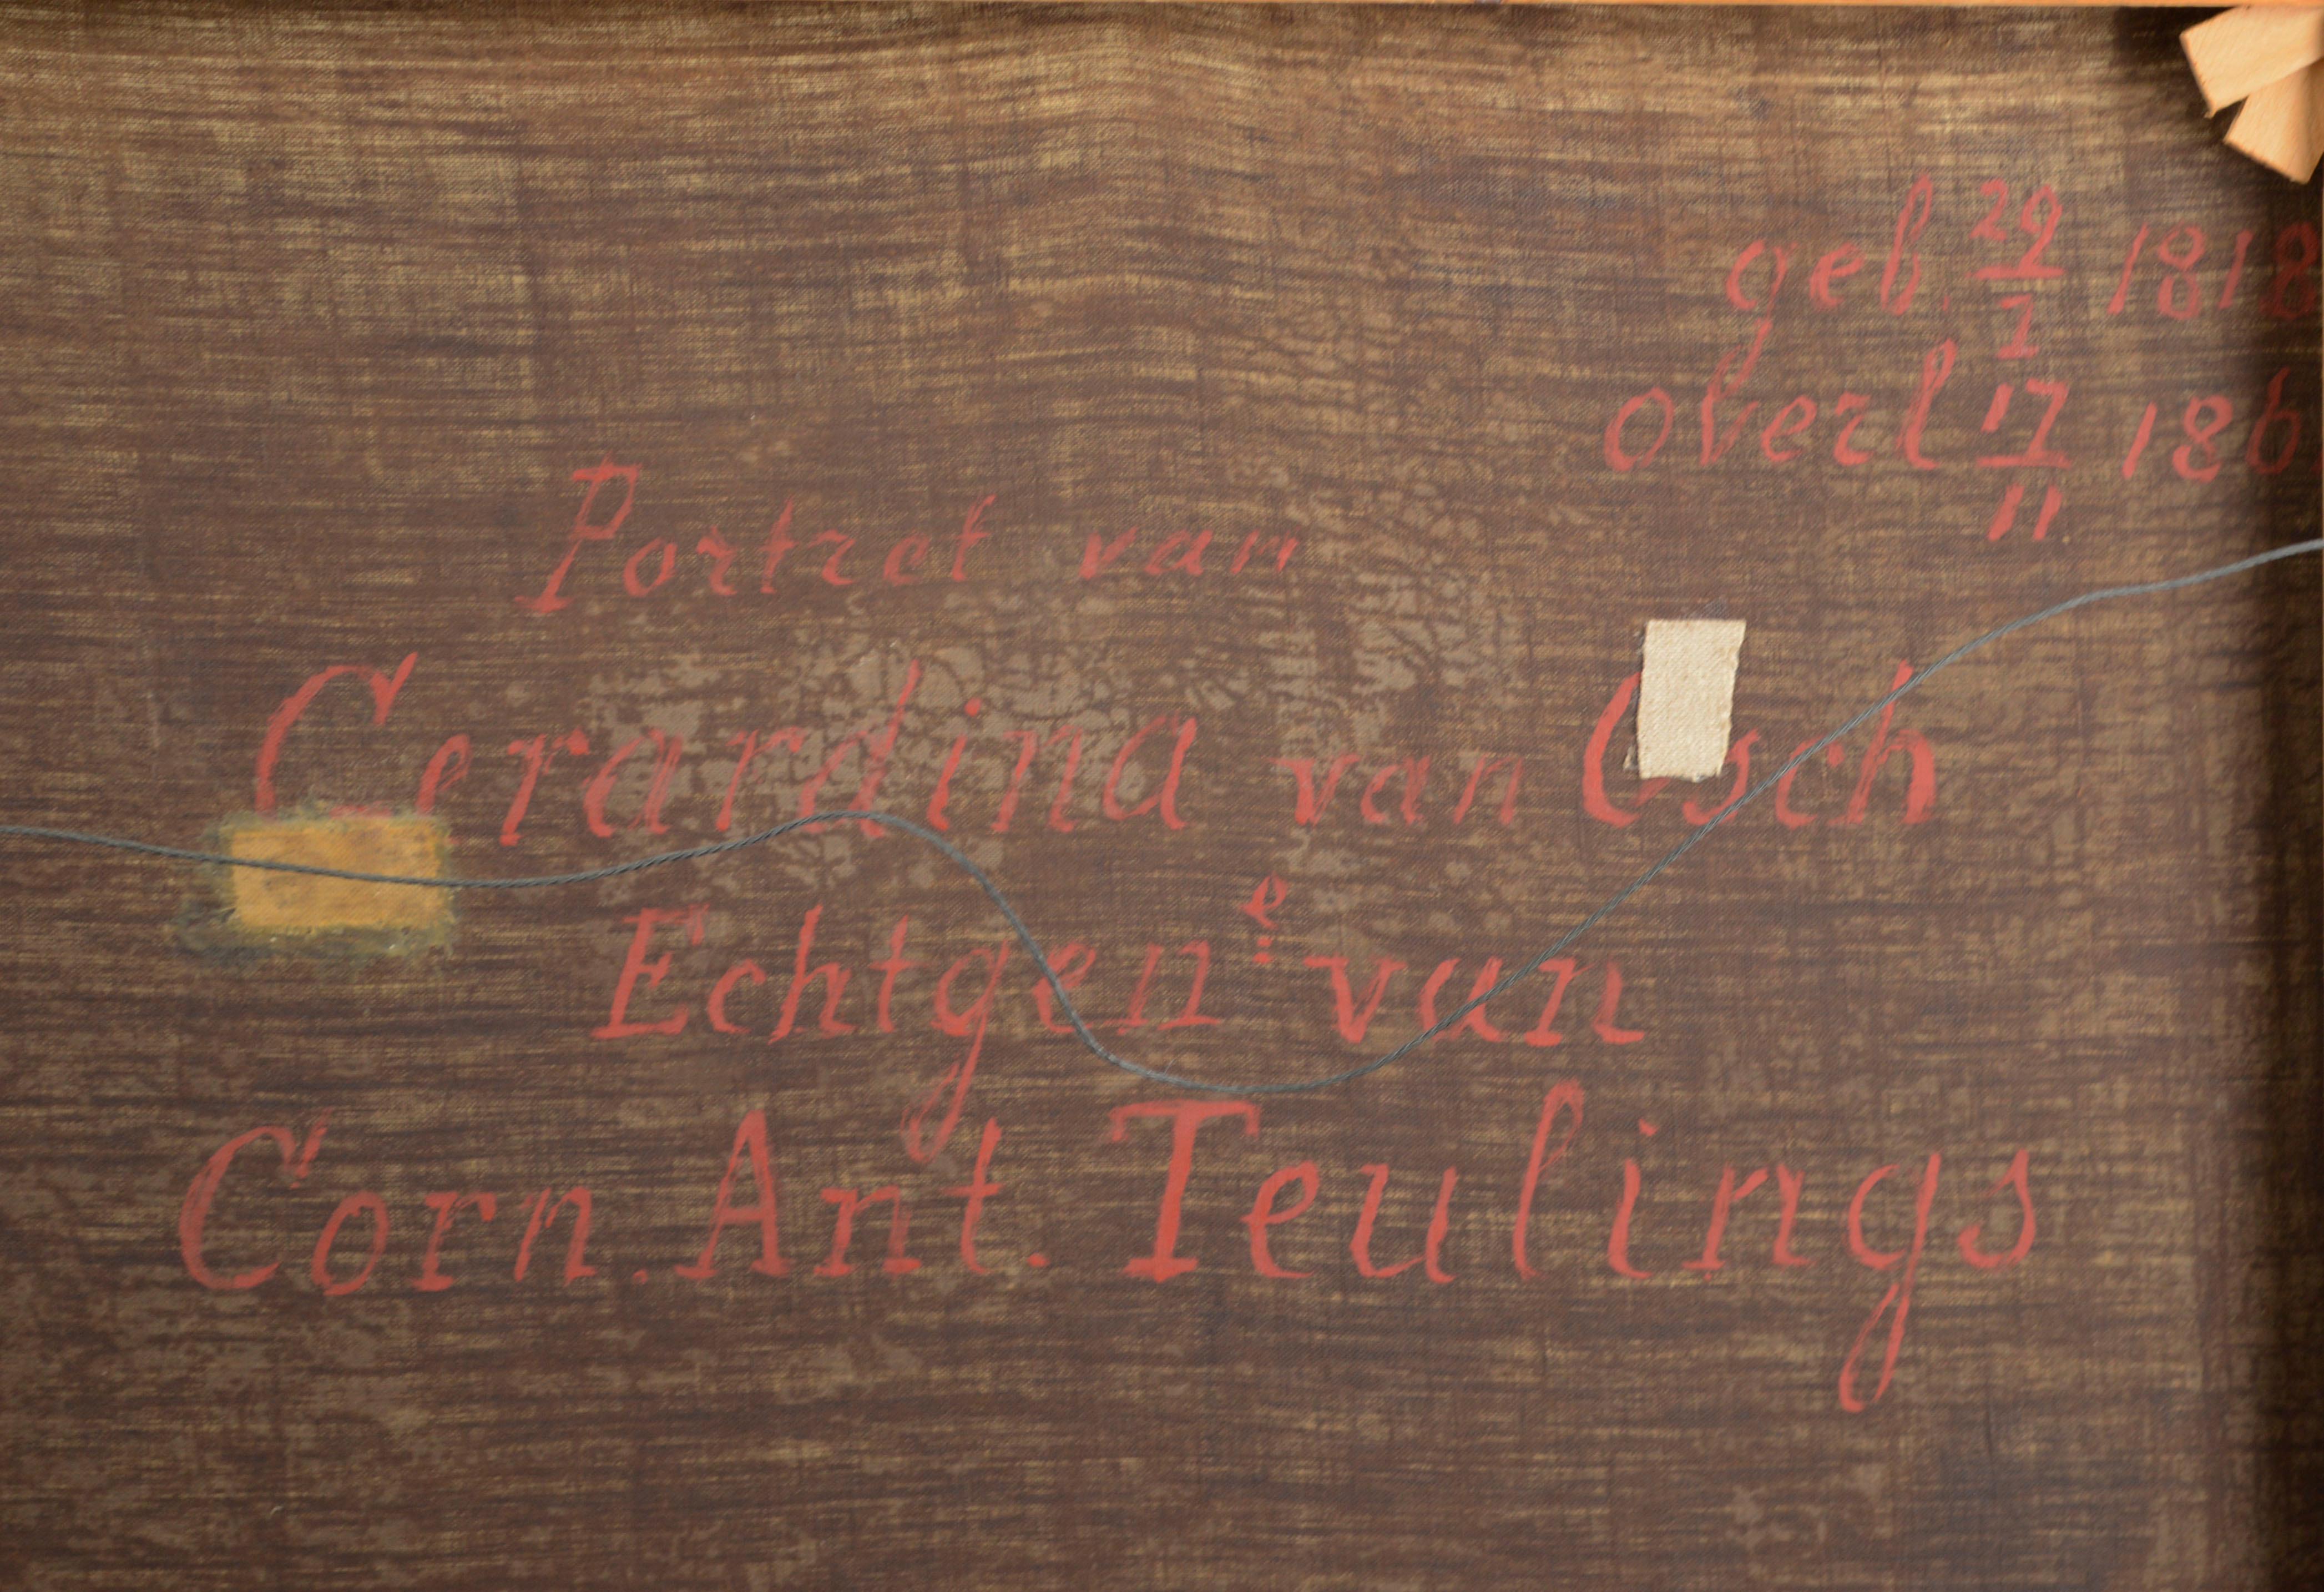 geb. 29/1 1818
overl 17/11 186
Portret van
Gerardina van Osch
Echtgenᵉ van
Corn. Ant. Teulings